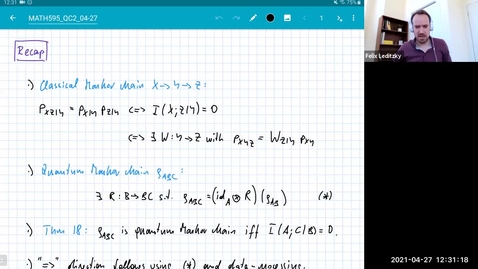 12:31
75%
MATH595_QC2_04-27
1
Recap
·) Classical Markov chain X→Y→Z:
P_XZ|Y = P_X|Y P_Z|Y <=> I(X;Z|Y)=0
<=> ∃ W: Y→Z with P_XYZ = W_Z|Y P_XY
·) Quantum Markov chain ρ_ABC:
∃ R: B→BC s.t. ρ_ABC = (id_A ⊗ R)(ρ_AB) (*)
·) Thm 18: ρ_ABC is quantum Markov chain iff I(A;C|B)=0.
·) "=>" direction follows using (*) and data-processing.
Felix Leditzky
2021-04-27 12:31:18